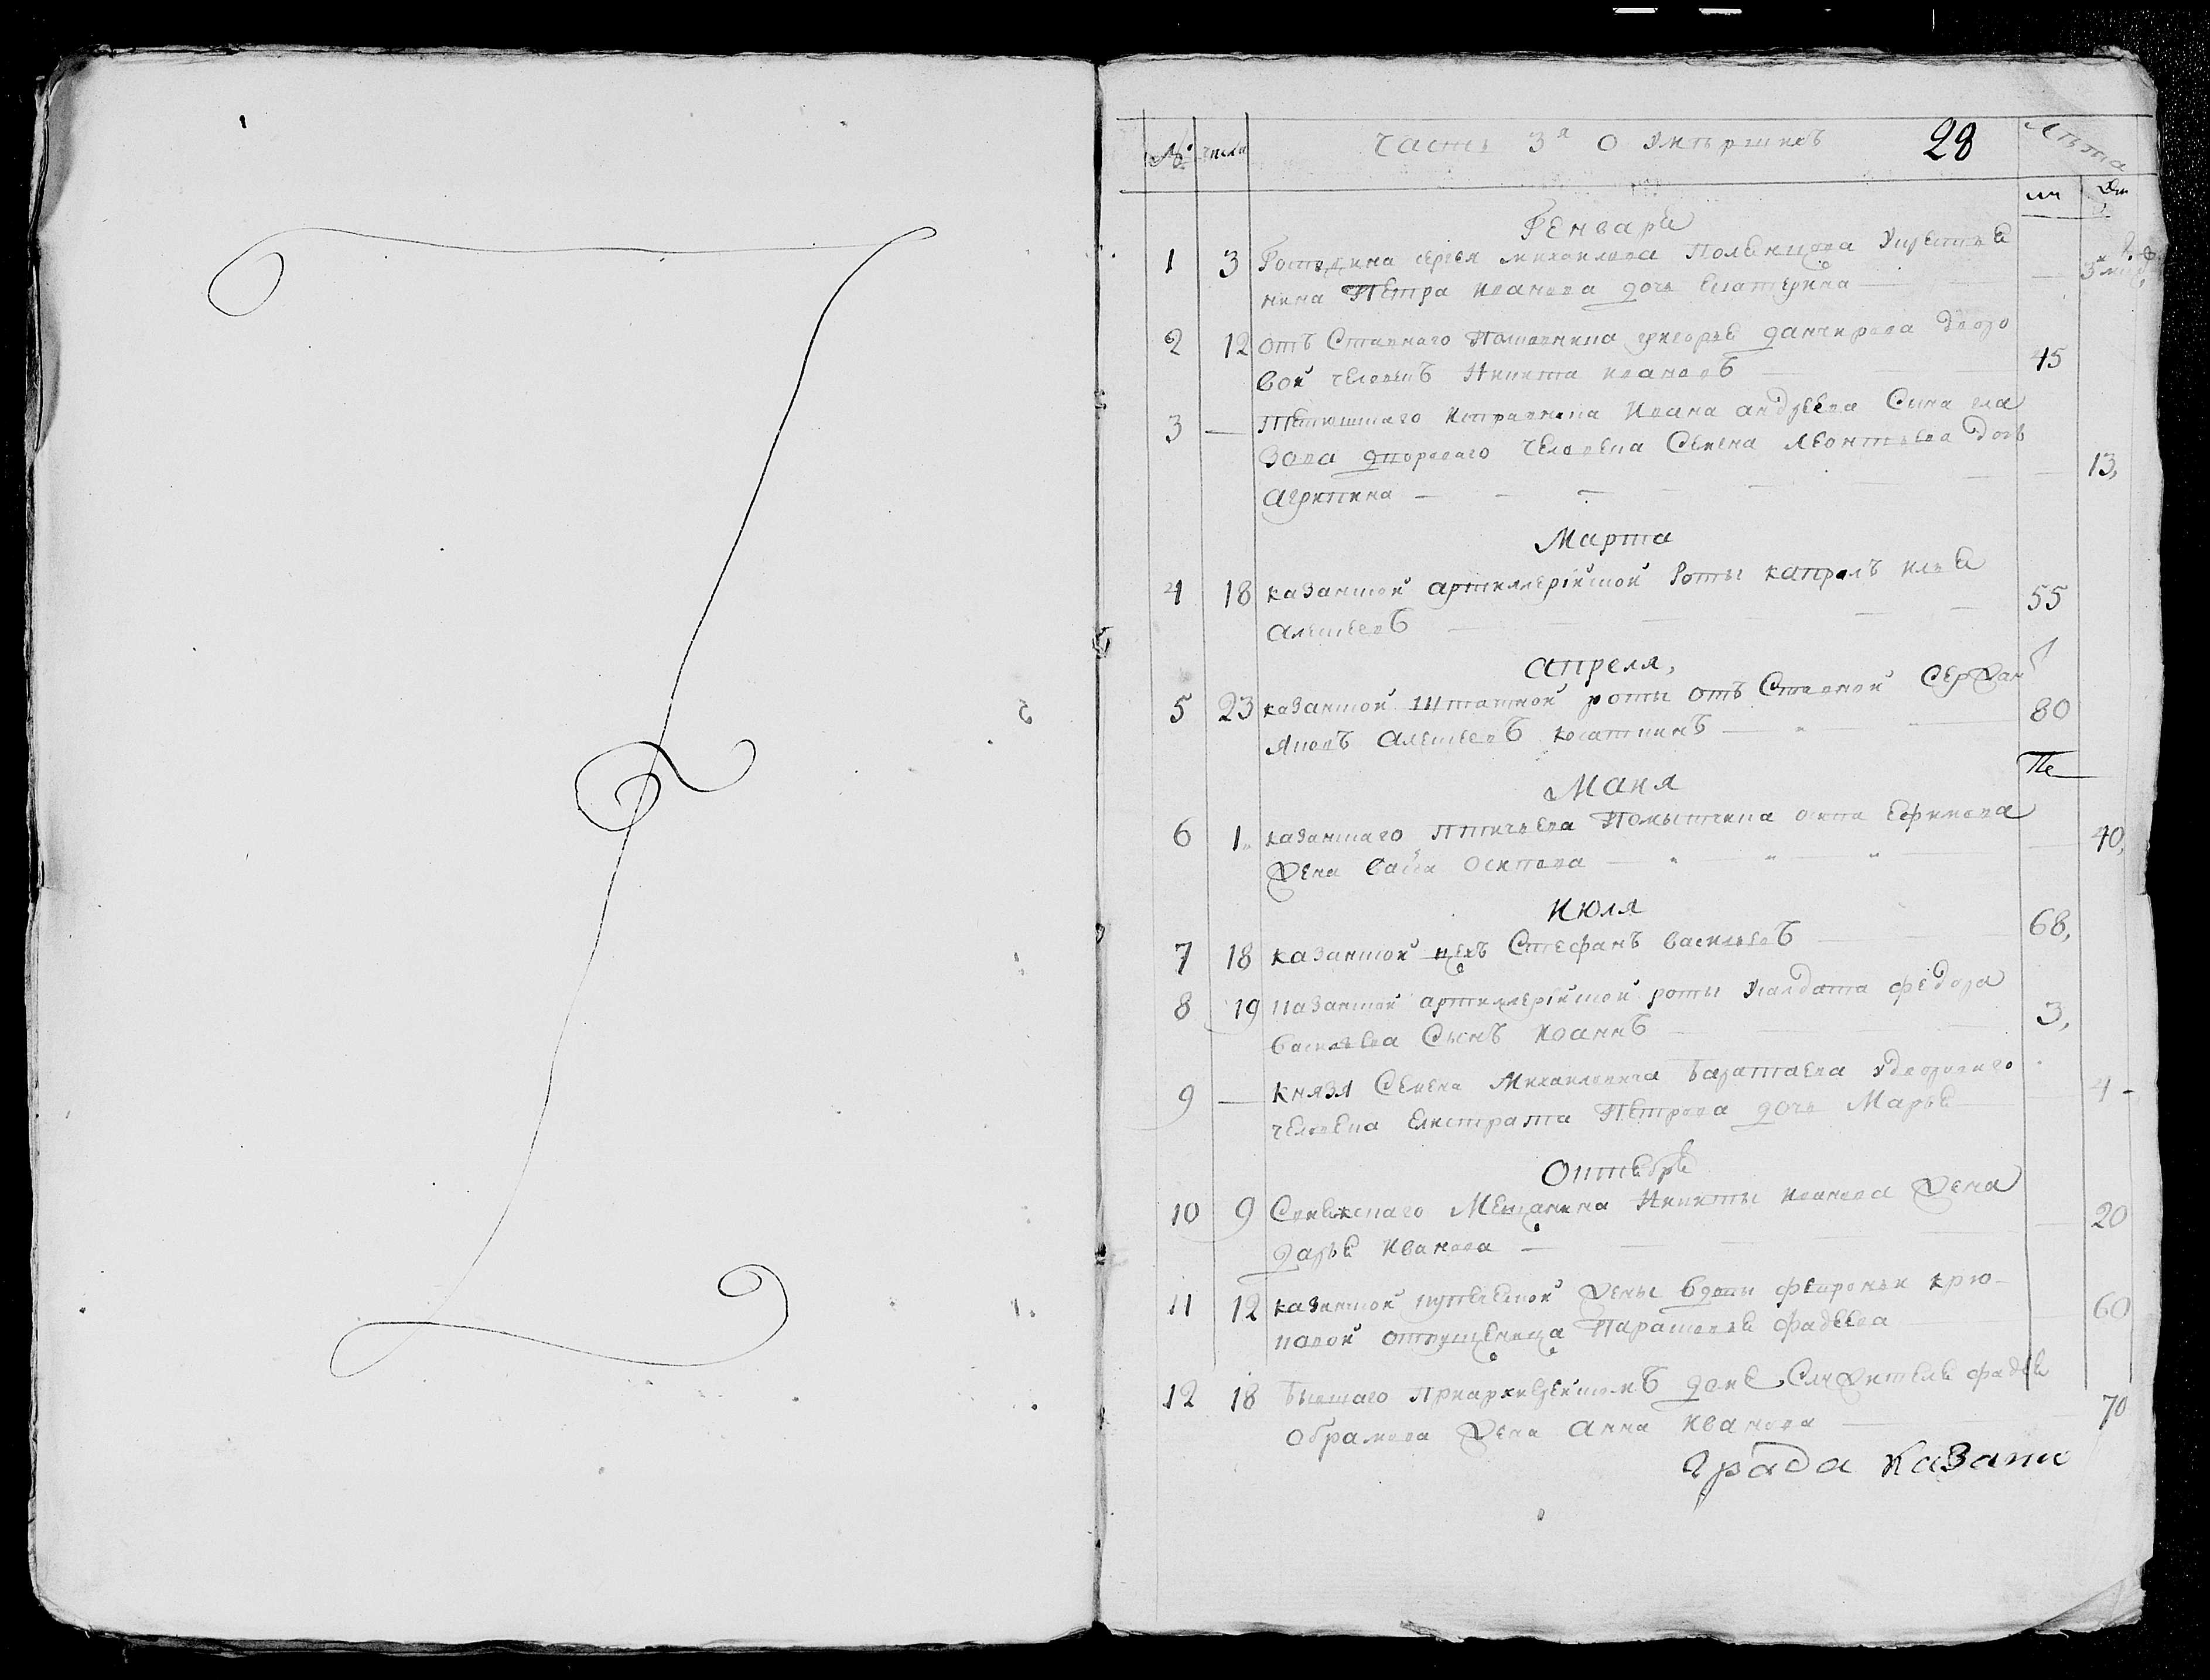 № числа Часть 3я О Умершихъ 28 Лѣта
му жен
Генваря
1 3 Господина сергея михайлова Полянцова Укрестья
нина Петра Иванова дочь Екатерина — 3 мис
2 12 отъ Ставнаго Полковника григорья данчирова дворо
вой человекъ Никита ивановъ — 45
3 — Исправника Ивана андреева Сына
дворового человека Семена Леонтьева дочь 13,
агрипина —
Марта
4 18 казанской артиллерійской Роты капралъ илья 55
алексеевъ —
апреля,
5 23 казанской Штатной роты отъ Ставной Сержан т
Яковъ алексеевъ — 80
Маия Пе
6 1 казанскаго Помытчика осипа Ефимова
жена васса осипова — 40,
Июля
7 18 казанской цехъ Стефанъ васильевъ — 68,
8 19 казанской артиллерійской роты Усалдата федора
васильева Сынъ Иоаннъ — 3,
9 — князя Семена Михаиловича баратаева Удворового
человека Евстрата Петрова дочь Марья — 4 -
Октября
10 9 Свияжскаго Мещанина Никиты иванова жена
дарья иванова — 20
11 12 казанской купеческой жены вдовы февроньи крю-
ковой отпущеница Парасковья фадеева 60
12 18 бывшаго приархиерейскомъ доме Служителя фадея
обрамова жена анна иванова — 70
града казани